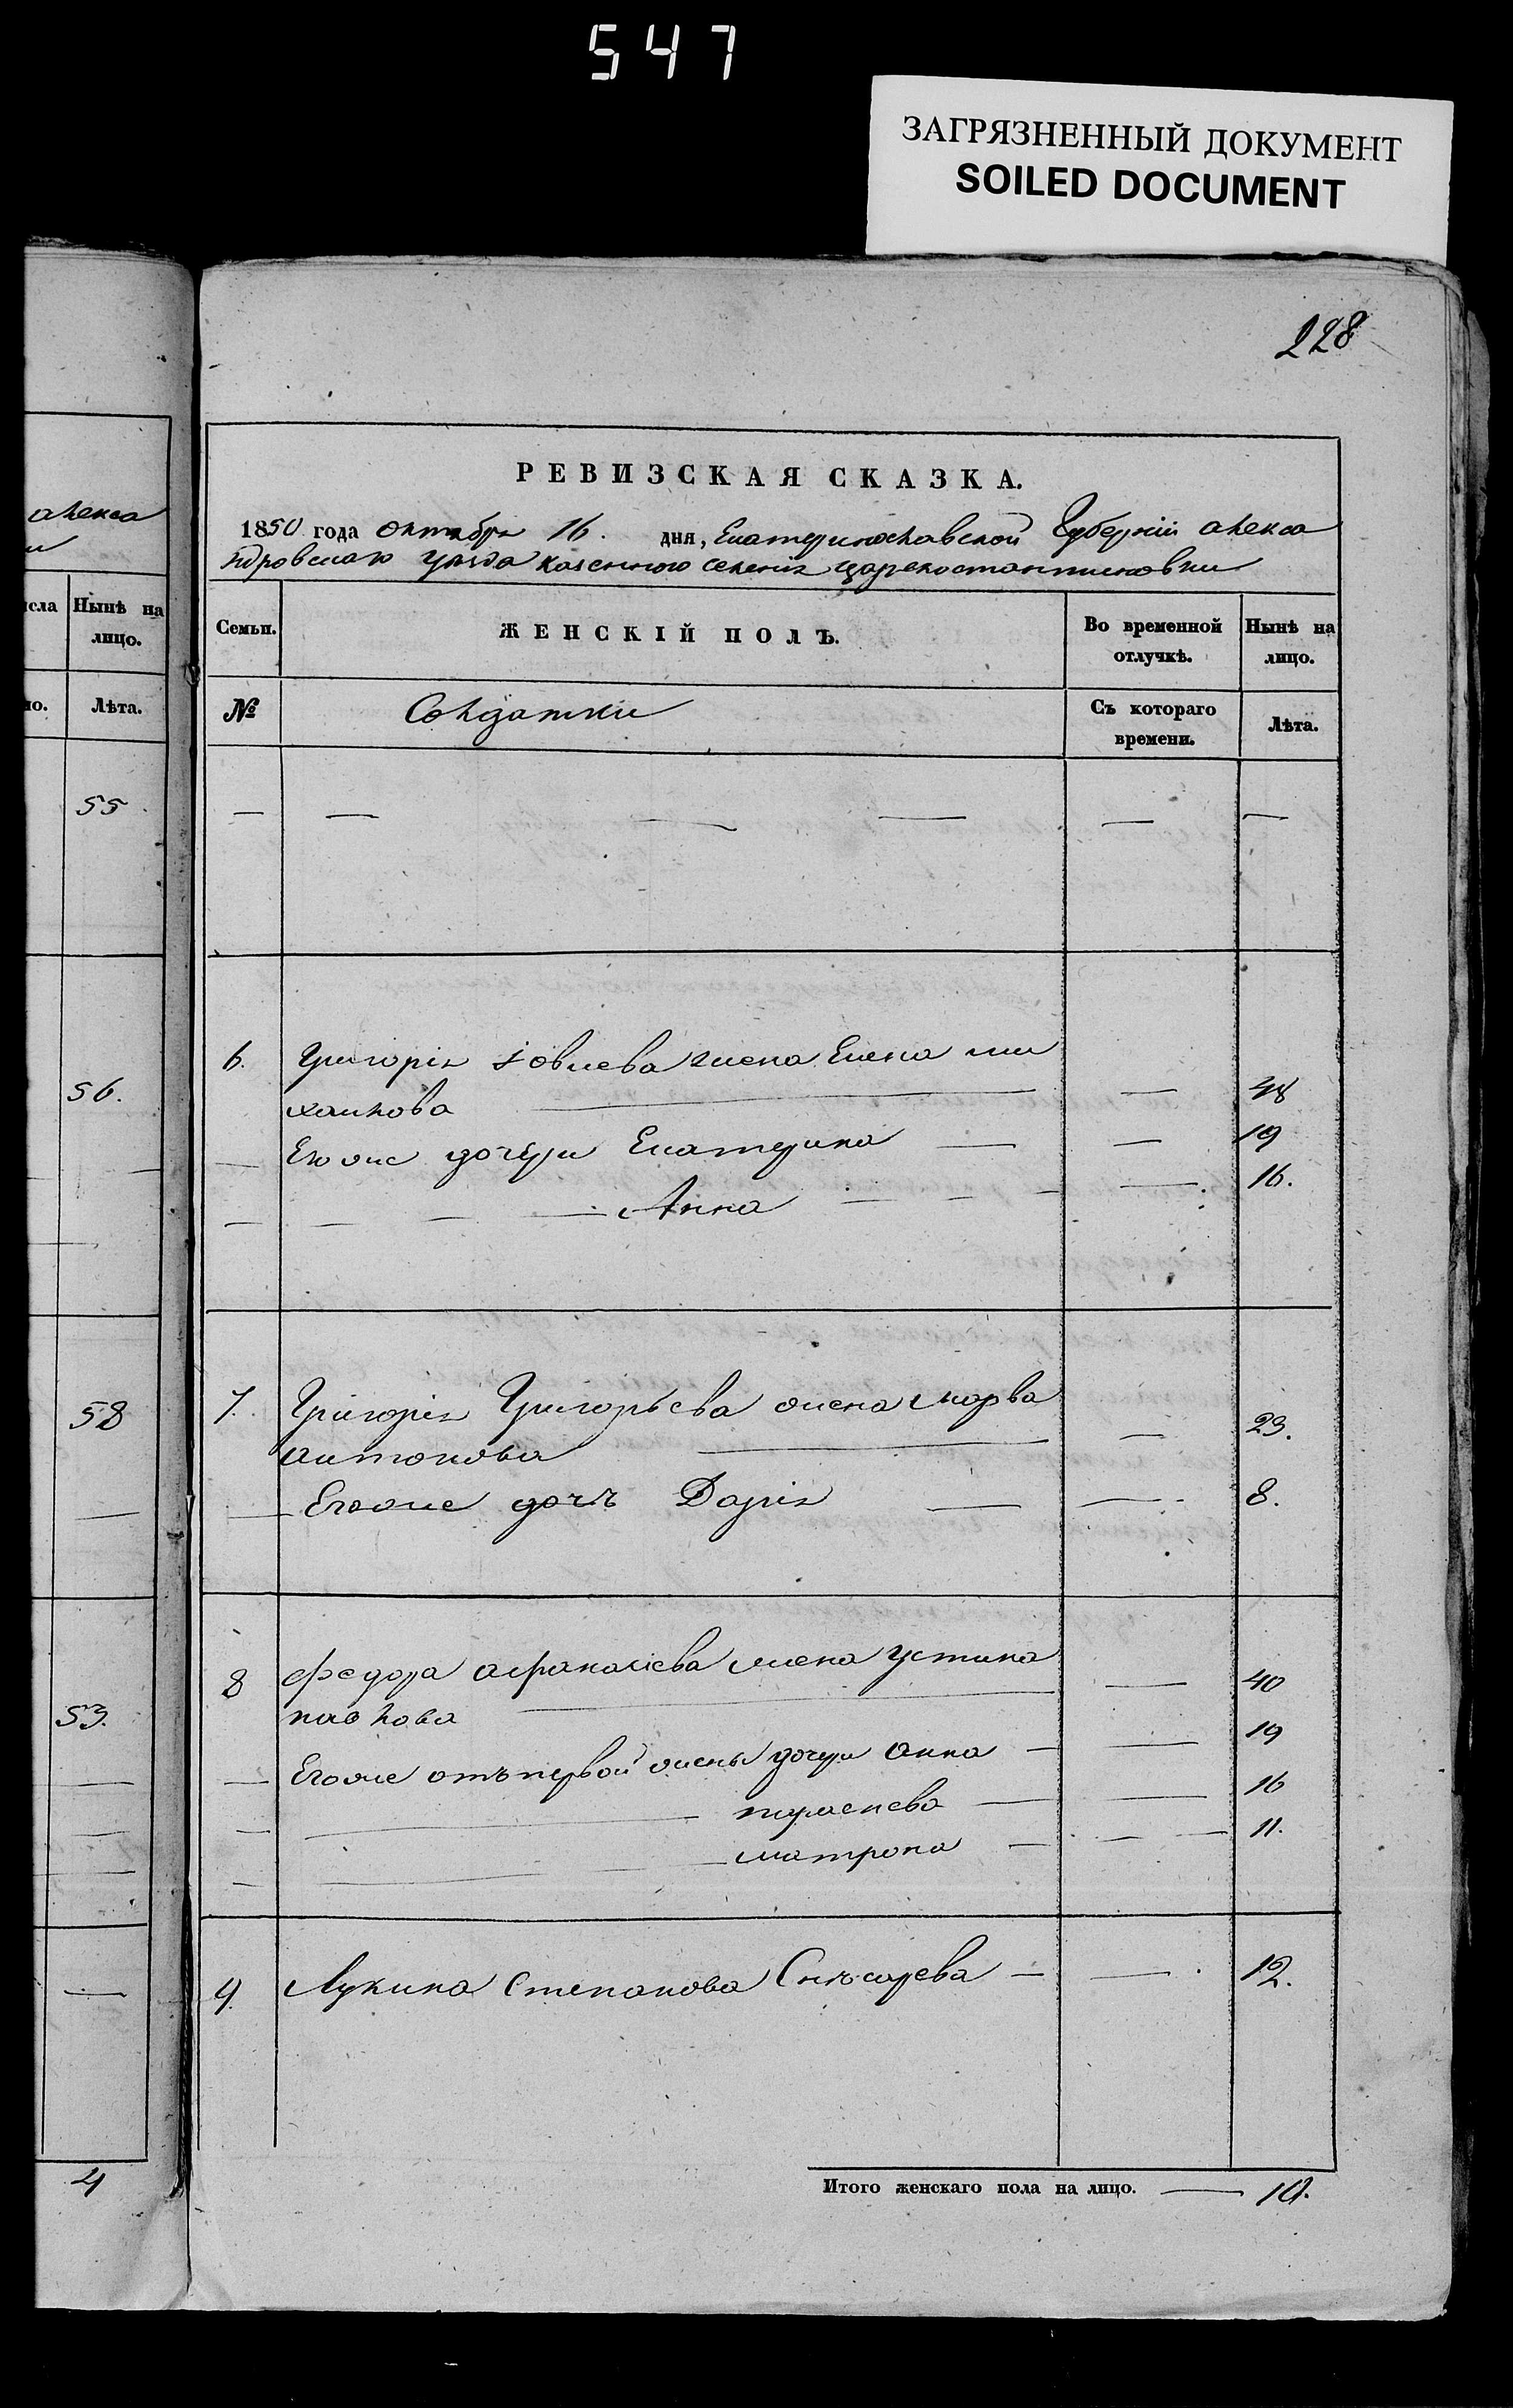 547
ЗАГРЯЗНЕННЫЙ ДОКУМЕНТ
SOILED DOCUMENT
228
алекса
и
исла Нынѣ на лицо.
но. Лѣта.
55
56.
58
53.
4
РЕВИЗСКАЯ СКАЗКА.
1850 года октября 16. дня, Екатеринославской Губерніи алекса
ндровскаго уѣзда казенного селенія Царекостантиновки
Семьи. ЖЕНСКІЙ ПОЛЪ. Во временной отлучкѣ. Нынѣ на лицо.
№ Солдатки Съ котораго времени. Лѣта.
6. Григорія Іовлева жена Елена ми
хаилова 48
Егоже дочери Екатерина 19
Анна 16.
7. Григорія Григорьева жена Марва
антонова 23.
Егоже дочь Дарія 8.
8 Федора афанасіева жена устина
павлова 40
Егоже отъ первой жены дочери анна 19
16
матрона 11.
9. Лукина Степанова Снѣсарева 12.
Итого женскаго пола на лицо. 10.